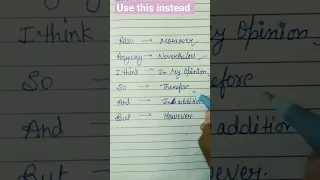 Use this instead
Also → Moreover
Anyway → Nevertheless
I think → In My Opinion
So → Therefore
And → In addition
But → However
I think
My Opinion
So
refore
And
addition